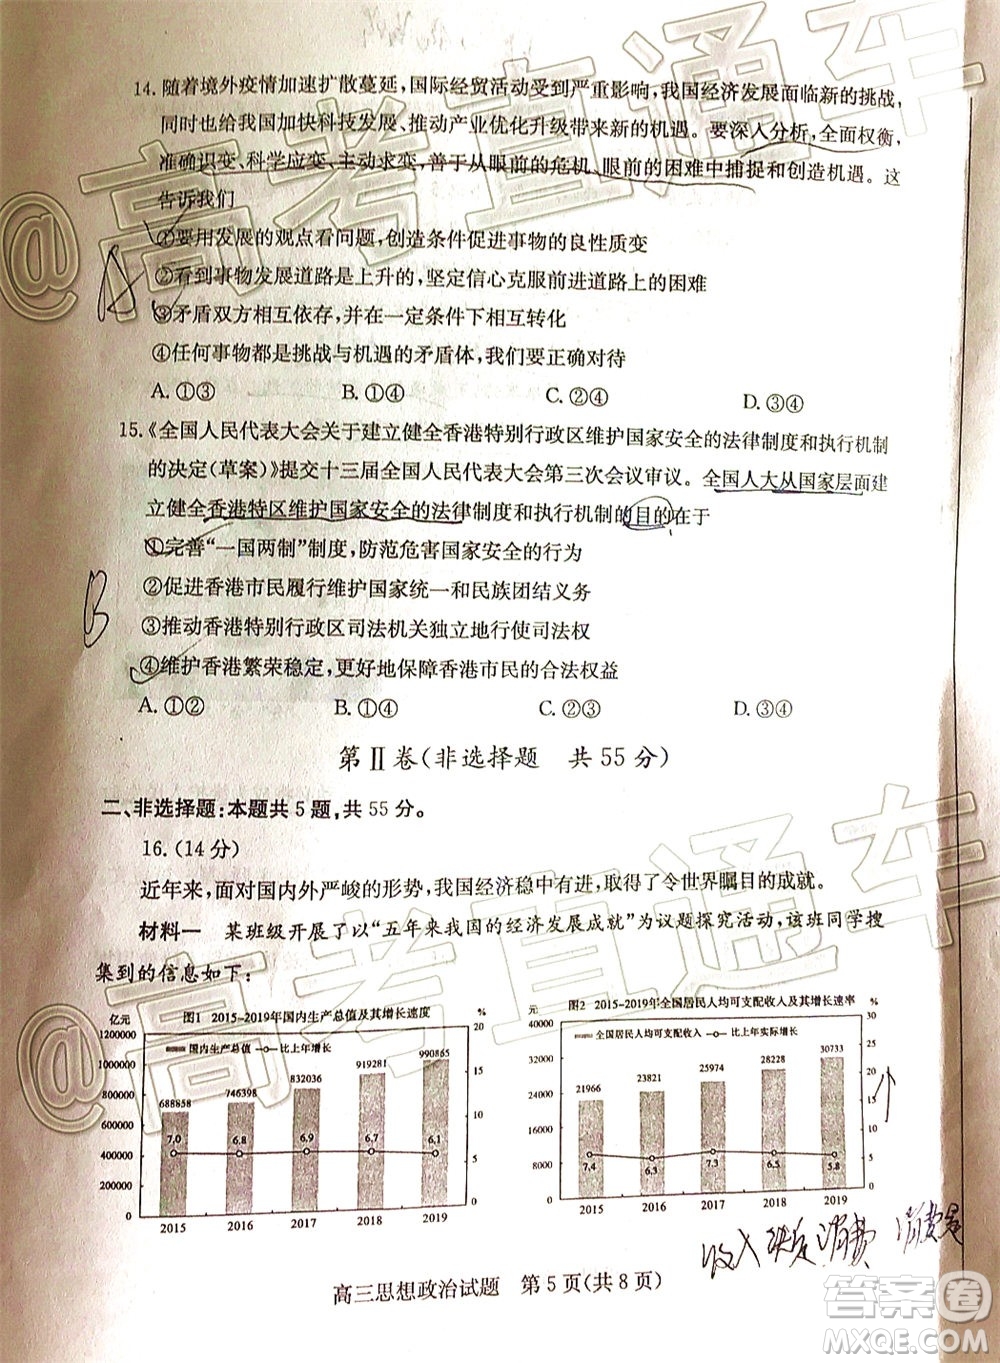 14. 随着境外疫情加速扩散蔓延,国际经贸活动受到严重影响,我国经济发展面临新的挑战,
同时也给我国加快科技发展、推动产业优化升级带来新的机遇。要深入分析,全面权衡,
准确识变、科学应变、主动求变,善于从眼前的危机、眼前的困难中捕捉和创造机遇。这
告诉我们
①要用发展的观点看问题,创造条件促进事物的良性质变
②看到事物发展道路是上升的,坚定信心克服前进道路上的困难
A
③矛盾双方相互依存,并在一定条件下相互转化
④任何事物都是挑战与机遇的矛盾体,我们要正确对待
A. ①③ B. ①④ C. ②④ D. ③④
15.《全国人民代表大会关于建立健全香港特别行政区维护国家安全的法律制度和执行机制
的决定(草案)》提交十三届全国人民代表大会第三次会议审议。全国人大从国家层面建
立健全香港特区维护国家安全的法律制度和执行机制的目的在于
①完善“一国两制”制度,防范危害国家安全的行为
②促进香港市民履行维护国家统一和民族团结义务
B
③推动香港特别行政区司法机关独立地行使司法权
④维护香港繁荣稳定,更好地保障香港市民的合法权益
A. ①② B. ①④ C. ②③ D. ③④
第Ⅱ卷(非选择题 共 55 分)
二、非选择题:本题共 5 题,共 55 分。
16. (14 分)
近年来,面对国内外严峻的形势,我国经济稳中有进,取得了令世界瞩目的成就。
材料一 某班级开展了以“五年来我国的经济发展成就”为议题探究活动,该班同学搜
集到的信息如下:
亿元 图1 2015-2019年国内生产总值及其增长速度 %
国内生产总值 比上年增长
1200000
1000000
800000
600000
400000
200000
0
20
15
10
5
0
688858 746398 832036 919281 990865
7.0 6.8 6.9 6.7 6.1
2015 2016 2017 2018 2019
元 图2 2015-2019年全国居民人均可支配收入及其增长速率 %
全国居民人均可支配收入 比上年实际增长
40000
32000
24000
16000
8000
0
30
25
20
15
10
5
0
21966 23821 25974 28228 30733
7.4 6.3 7.3 6.5 5.8
2015 2016 2017 2018 2019
收入决定消费 消费是
高三思想政治试题 第 5 页(共 8 页)
@高考直通车
@高考直通车
答案圈
MXQE.COM